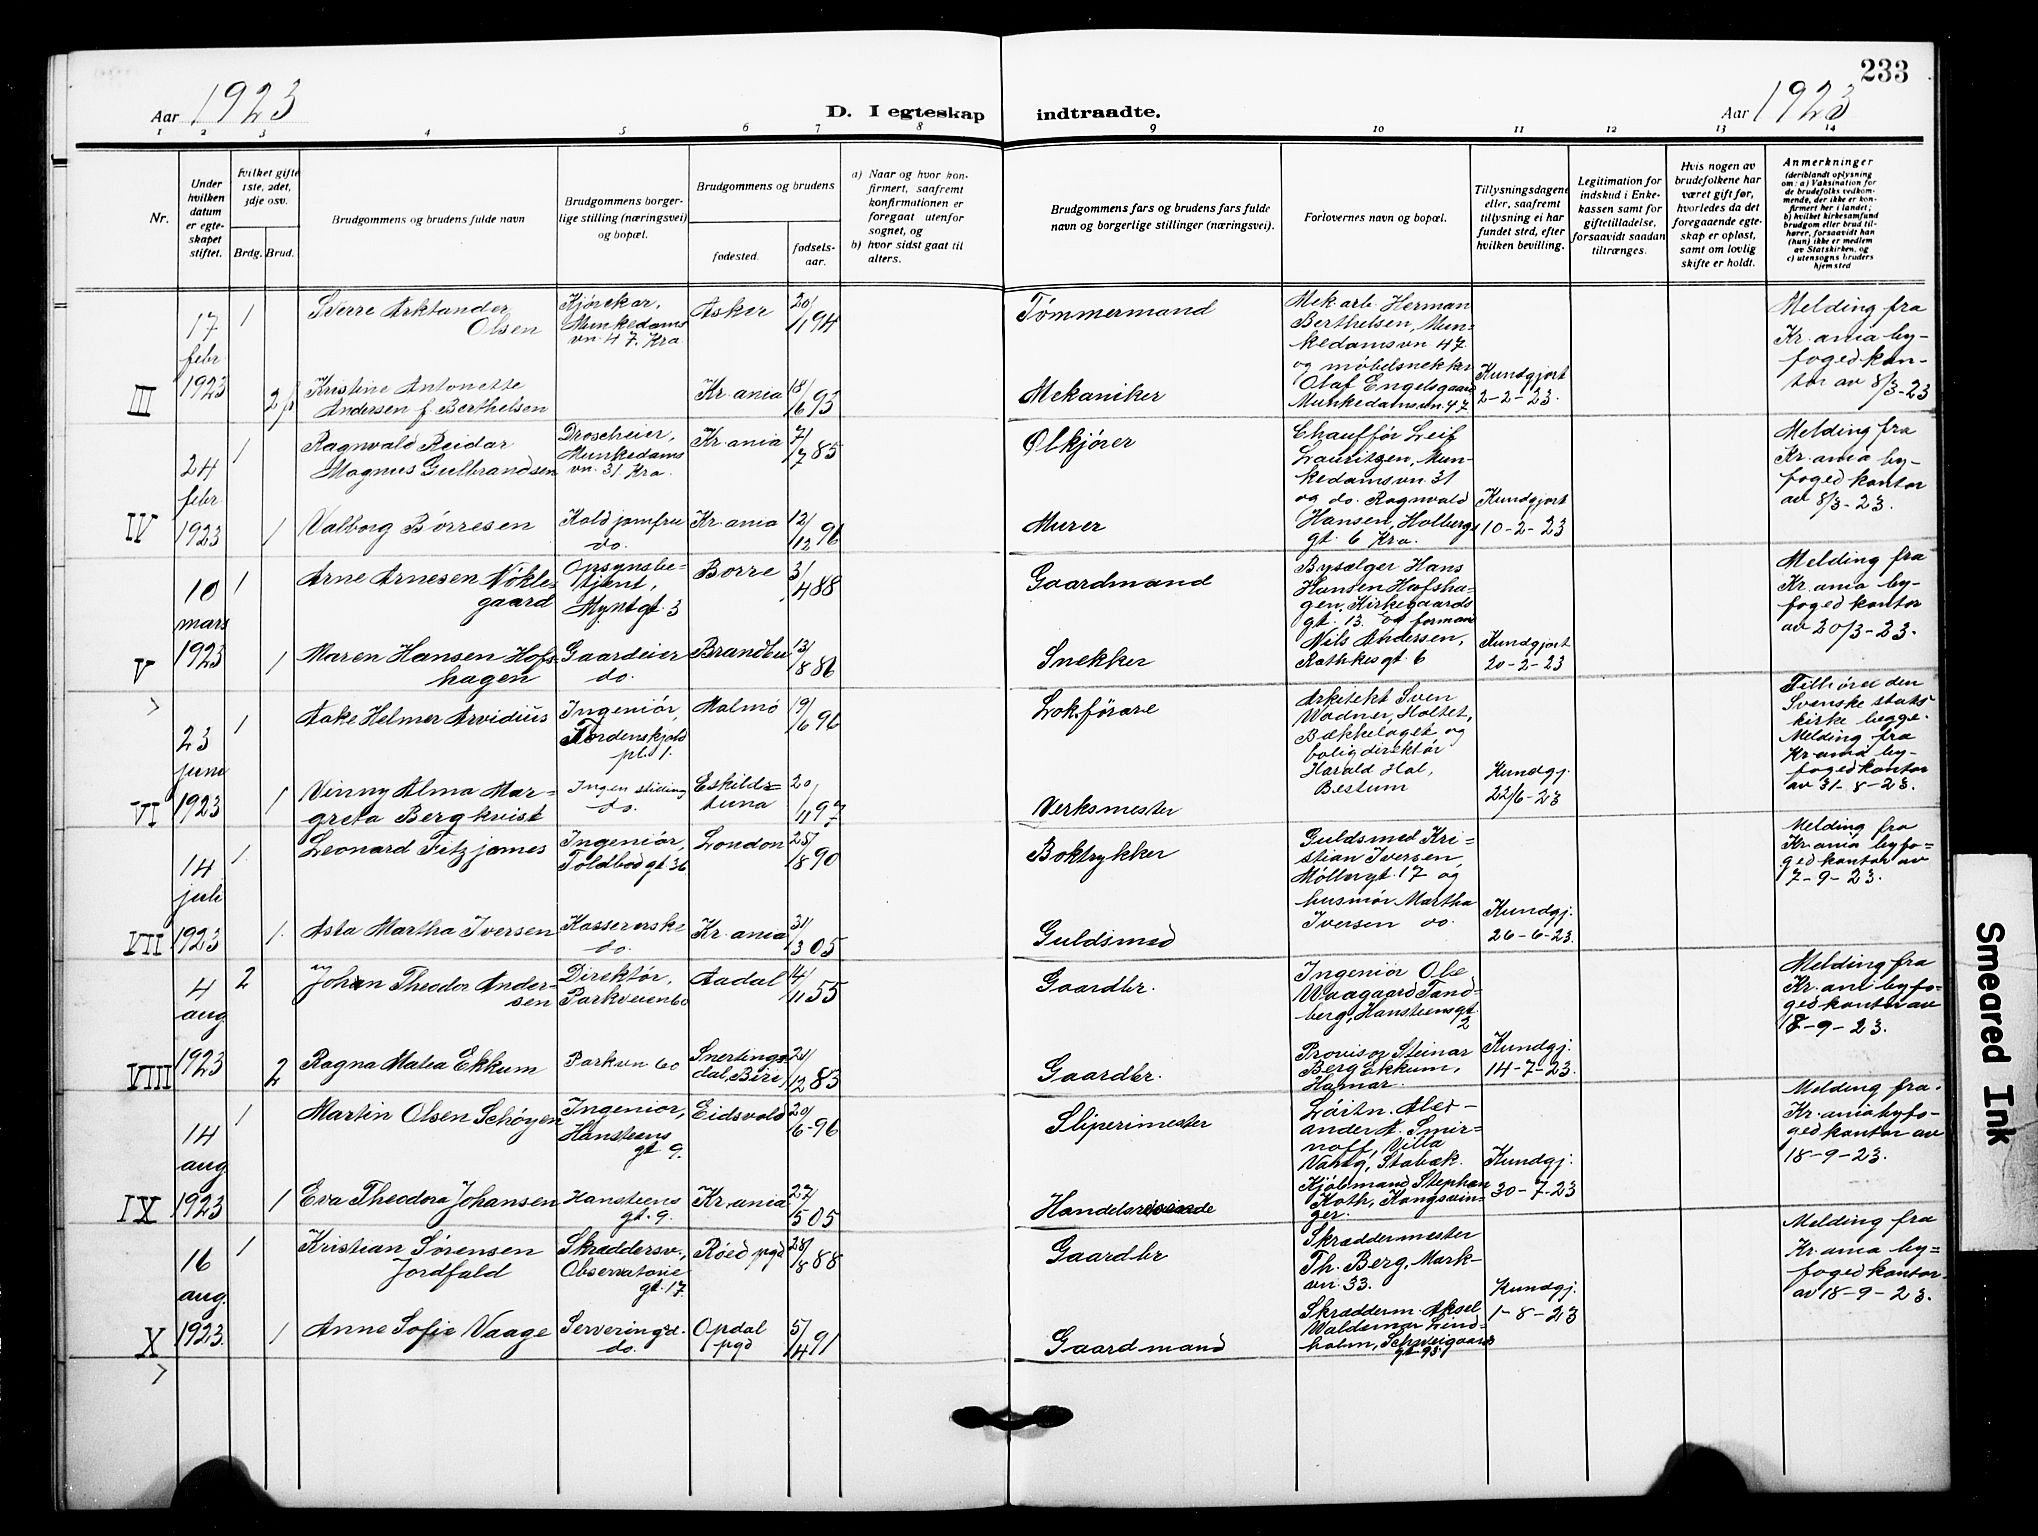 233
Aar 1923
D. I egteskap indtraadte.
Aar 1923
1 2 3 4 5 6 7 8 9 10 11 12 13 14
Nr.
Under
hvilken
datum
er egte-
skapet
stiftet.
Hvilket gifte
1ste, 2det,
3dje osv.
Brdg. Brud.
Brudgommens og brudens fulde navn
Brudgommens borger-
lige stilling (næringsvei)
og bopæl.
Brudgommens og brudens
fødested.
fødsels-
aar.
a) Naar og hvor kon-
firmert, saafremt
konfirmationen er
foregaat utenfor
sognet, og
b) hvor sidst gaat til
alters.
Brudgommens fars og brudens fars fulde
navn og borgerlige stillinger (næringsvei).
Forlovernes navn og bopæl.
Tillysningsdagene
eller, saafremt
tillysning ei har
fundet sted, efter
hvilken bevilling.
Legitimation for
indskud i Enke-
kassen samt for
giftetilladelse,
forsaavidt saadan
tiltrænges.
Hvis nogen av
brudefolkene har
været gift før,
hvorledes da det
foregaaende egte-
skap er opløst,
samt om lovlig
skifte er holdt.
Anmerkninger
(deriblandt oplysning
om: a) Vaksination for
de brudefolks vedkom-
mende, der ikke er kon-
firmert her i landet;
b) hvilket kirkesamfund
brudgom eller brud til-
hører, forsaavidt han
(hun) ikke er medlem
av Statskirken, og
c) utensogns bruders
hjemsted
III
17
febr
1923
1
Sverre Arktander
Olsen
Kjørekar,
Munkedams
vn. 47. Kra
Asker
20/11 94
Tømmermand
Mek. arb. Herman
Berthelsen, Mun-
kedamsvn. 47
og møbelsnekker
Olaf Engelsgaard
Munkedamsvn. 47
Kundgjort
2-2-23.
Melding fra
Kr.ania by-
foged kon-
tor av 8/3-23
Kristine Antonette
Andersen f. Berthelsen
Kr.ania
18/6 93
Mekaniker
IV
24
febr.
1923
1
Ragnvald Reidar
Magnus Gulbrandsen
Droscheier,
Munkedams
vn. 31 Kra.
Kr.ania
7/7 85
Ølkjører
Chauffør Leif
Lauritzen, Mun-
kedamsvn. 31
og do. Ragnvald
Hansen, Holbergs
gt. 6 Kra.
Kundgjort
10-2-23
Melding fra
Kr.ania by-
foged kontor
av 8/3-23.
1
Valborg Børresen
Koldjomfru
do.
Kr.ania
12/12 96
Murer
V
10
mars
1923
1
Arne Arnesen Nøkle-
gaard
Opsynsbe-
tjent,
Myntgt. 3
Borre
3/4 88
Gaardmand
Bysælger Hans
Hansen Hofsha-
gen, Kirkegaards
gt. 13. og forman
Nils Andersen,
Rathkesgt. 6
Kundgjort
20-2-23
Melding fra
Kr.ania by-
foged kontor
av 20/3-23.
1
Maren Hansen Hofs-
hagen
Gaardeier
do.
Brandbu
13/8 86
Snekker
VI
23
juni
1923
1
Aake Helmer Arvidius
Ingeniør,
Tordenskjold
pl. 1.
Malmø
19/6 96
Lokförare
Arkitekt Sven
Wadner, Holtet,
Bækkelaget og
boligdirektør
Harald Hal,
Bestum
Kundgj.
22/6-23
Tilhører den
Svenske stats-
kirke begge.
Melding fra
Kr.ania by-
foged kontor
av 31-8-23.
1
Vinny Alma Mar-
greta Bergkvist
Ingen stilling
do.
Eskilds-
tuna
20/11 97
Verksmester
VII
14
juli
1923
1
Leonard Fitzjames
Ingeniør,
Toldbodgt 36
London
25/8 90
Boktrykker
Guldsmed Kri-
stian Iversen,
Møllergt. 17 og
husmor Martha
Iversen do.
Kundgj.
26-6-23.
Melding fra
Kr.ania byfo-
gedkontor av
7-9-23.
1.
Asta Martha Iversen
Kassererske
do.
Kr.ania
31/3 05
Guldsmed
VIII
4
aug
1923
2
Johan Theodor Ander-
sen
Direktør,
Parkveien 60
Aadal
4/11 55
Gaardbr.
Ingeniør Obe.
Waagaard Tand-
berg, Hansteensgt.
2
Provisor Steinar
Berg Ekkum,
Hamar.
Kundgj.
14-7-23.
Melding fra
Kr.ani byfo-
gedkontor av
18-9-23.
2
Ragna Malea Ekkum
Parkvn 60
Snertings-
dal, Biri
21/12 83
Gaardbr.
IX
14
aug
1923
1
Martin Olsen Schøyen
Ingeniør,
Hansteens
gt 9.
Eidsvold
20/6-96
Sliperimester
Løitn. Alex-
ander A. Smir-
noff, Villa
Varg, Stabæk.
Kjøbmand Stephan
Koth, Kongsvin-
ger.
Kundgj.
30-7-23
Melding fra.
Kr.ania byfo-
gedkontor av
18-9-23.
1
Eva Theodora Johansen
Hansteens
gt. 9.
Kr.ania
27/5 05
X
16
aug.
1923.
1
Kristian Sørensen
Jordfald
Skræddersv.,
Observatorie
gt. 17.
Røed pgd
28/8 88
Gaardbr
Skræddermester
Th. Berg, Mark-
vn. 33.
Skrædderm. Aksel
Waldemar Lind-
holm, Schweigaards
gt 95
Kundgj.
1-8-23
Melding fra
Kr.ania by-
fogedkontor
av 18-9-23.
1
Anne Sofie Vaage
Serveringsd.
do.
Opdal
pgd
5/4 91
Gaardmand
Smeared Ink